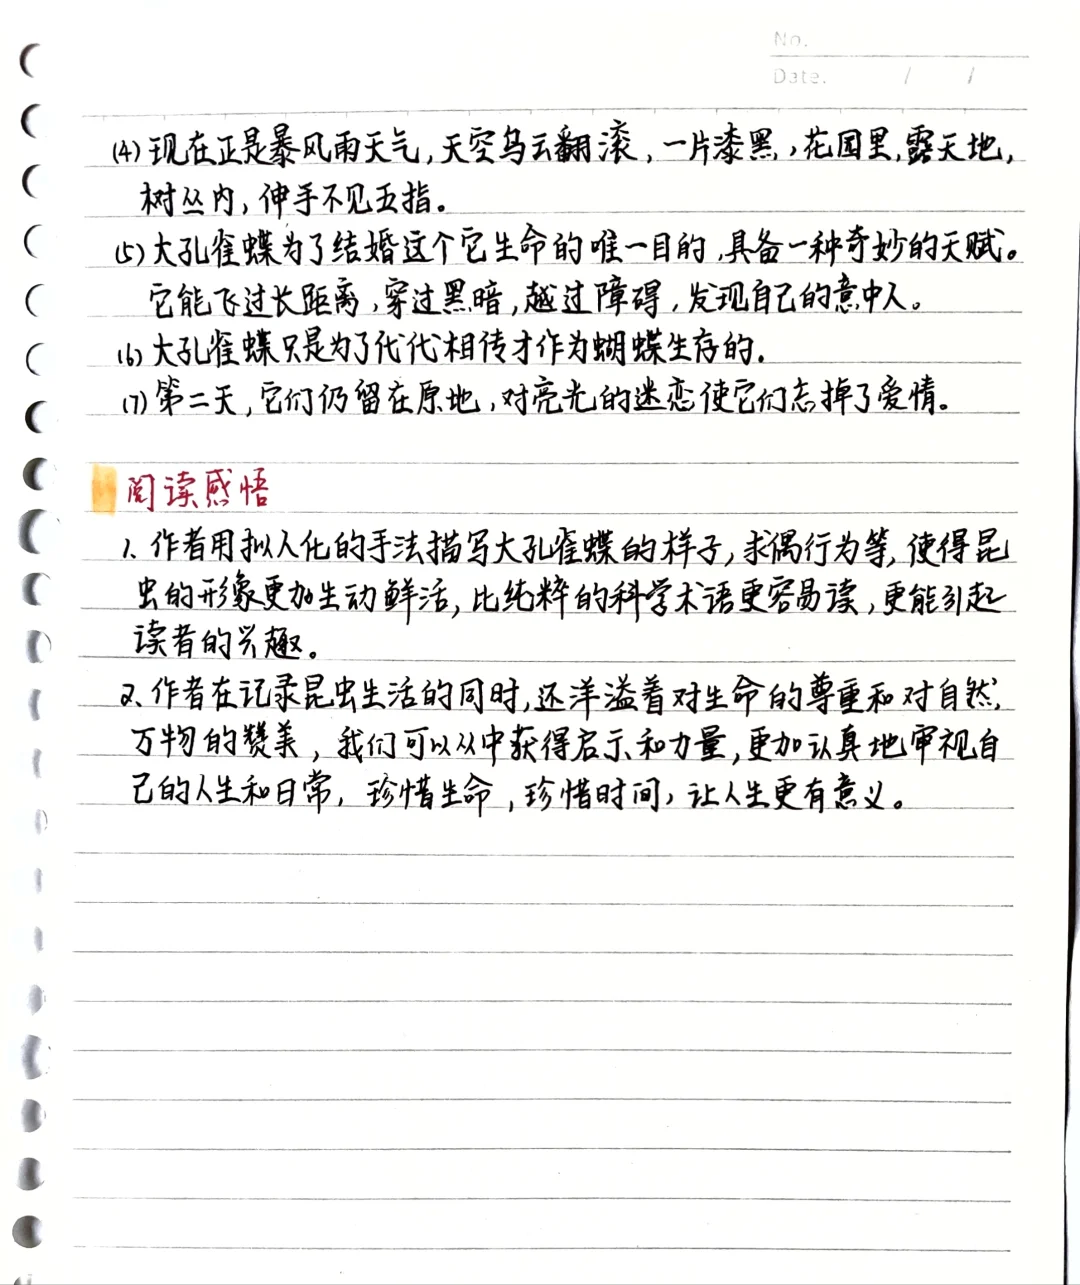 No.
Date. / /
(4) 现在正是暴风雨天气，天空乌云翻滚，一片漆黑，花园里，露天地，
树丛内，伸手不见五指。
(5) 大孔雀蝶为了结婚这个它生命的唯一目的，具备一种奇妙的天赋。
它能飞过长距离，穿过黑暗，越过障碍，发现自己的意中人。
(6) 大孔雀蝶只是为了代代相传才作为蝴蝶生存的。
(7) 第二天，它们仍留在原地，对亮光的迷恋使它们忘掉了爱情。
阅读感悟
1. 作者用拟人化的手法描写大孔雀蝶的样子，求偶行为等，使得昆
虫的形象更加生动鲜活，比纯粹的科学术语更容易读，更能引起
读者的兴趣。
2. 作者在记录昆虫生活的同时，还洋溢着对生命的尊重和对自然
万物的赞美，我们可以从中获得启示和力量，更加认真地审视自
己的人生和日常，珍惜生命，珍惜时间，让人生更有意义。